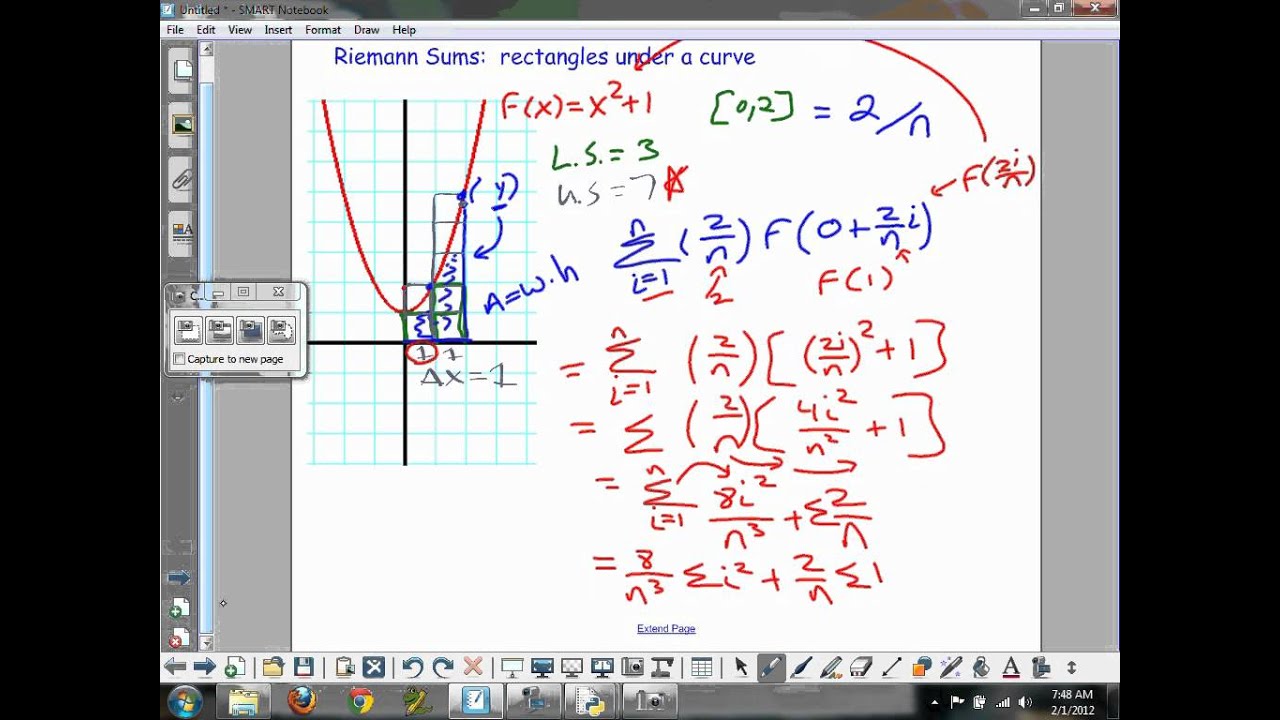 Untitled * - SMART Notebook
File Edit View Insert Format Draw Help
Riemann Sums: rectangles under a curve
F(x)=x²+1 [0,2] = 2/n
L.S.= 3
U.S =7
F(2i/n)
(y)
n
Σ (2/n) F(0+2/n i)
i=1
2
F(1)
A=w.h
1 1
Δx=1
C...
Capture to new page
n
= Σ (2/n) [(2i/n)²+1]
i=1
= Σ (2/n) [4i²/n² +1]
n
= Σ 8i²/n³ + Σ 2/n
i=1
= 8/n³ Σi² + 2/n Σ1
Extend Page
7:48 AM
2/1/2012